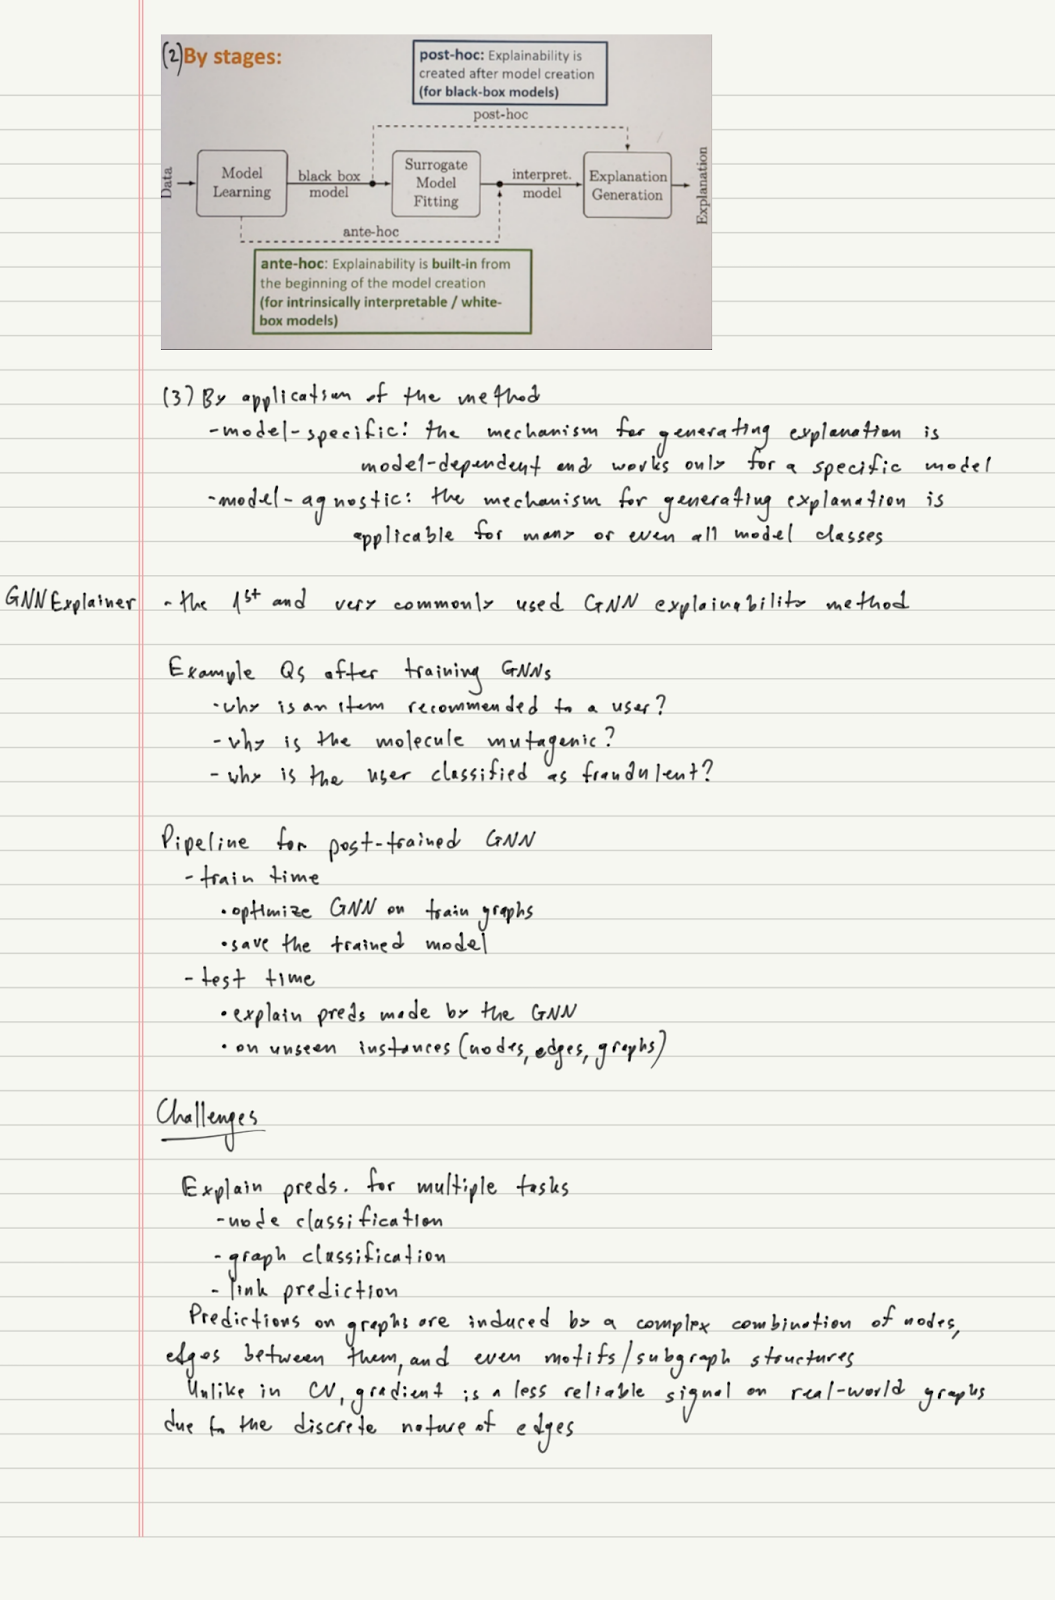 (2) By stages:
post-hoc: Explainability is
created after model creation
(for black-box models)
post-hoc
Data
Model
Learning
black box
model
Surrogate
Model
Fitting
interpret.
model
Explanation
Generation
Explanation
ante-hoc
ante-hoc: Explainability is built-in from
the beginning of the model creation
(for intrinsically interpretable / white-
box models)
(3) By application of the method
-model-specific: the mechanism for generating explanation is
model-dependent and works only for a specific model
-model-agnostic: the mechanism for generating explanation is
applicable for many or even all model classes
GNNExplainer - the 1st and very commonly used GNN explainability method
Example Qs after training GNNs
-why is an item recommended to a user?
-why is the molecule mutagenic?
-why is the user classified as fraudulent?
Pipeline for post-trained GNN
-train time
•optimize GNN on train graphs
•save the trained model
-test time
•explain preds made by the GNN
•on unseen instances (nodes, edges, graphs)
Challenges
Explain preds. for multiple tasks
-node classification
-graph classification
-link prediction
Predictions on graphs are induced by a complex combination of nodes,
edges between them, and even motifs/subgraph structures
Unlike in CV, gradient is a less reliable signal on real-world graphs
due to the discrete nature of edges